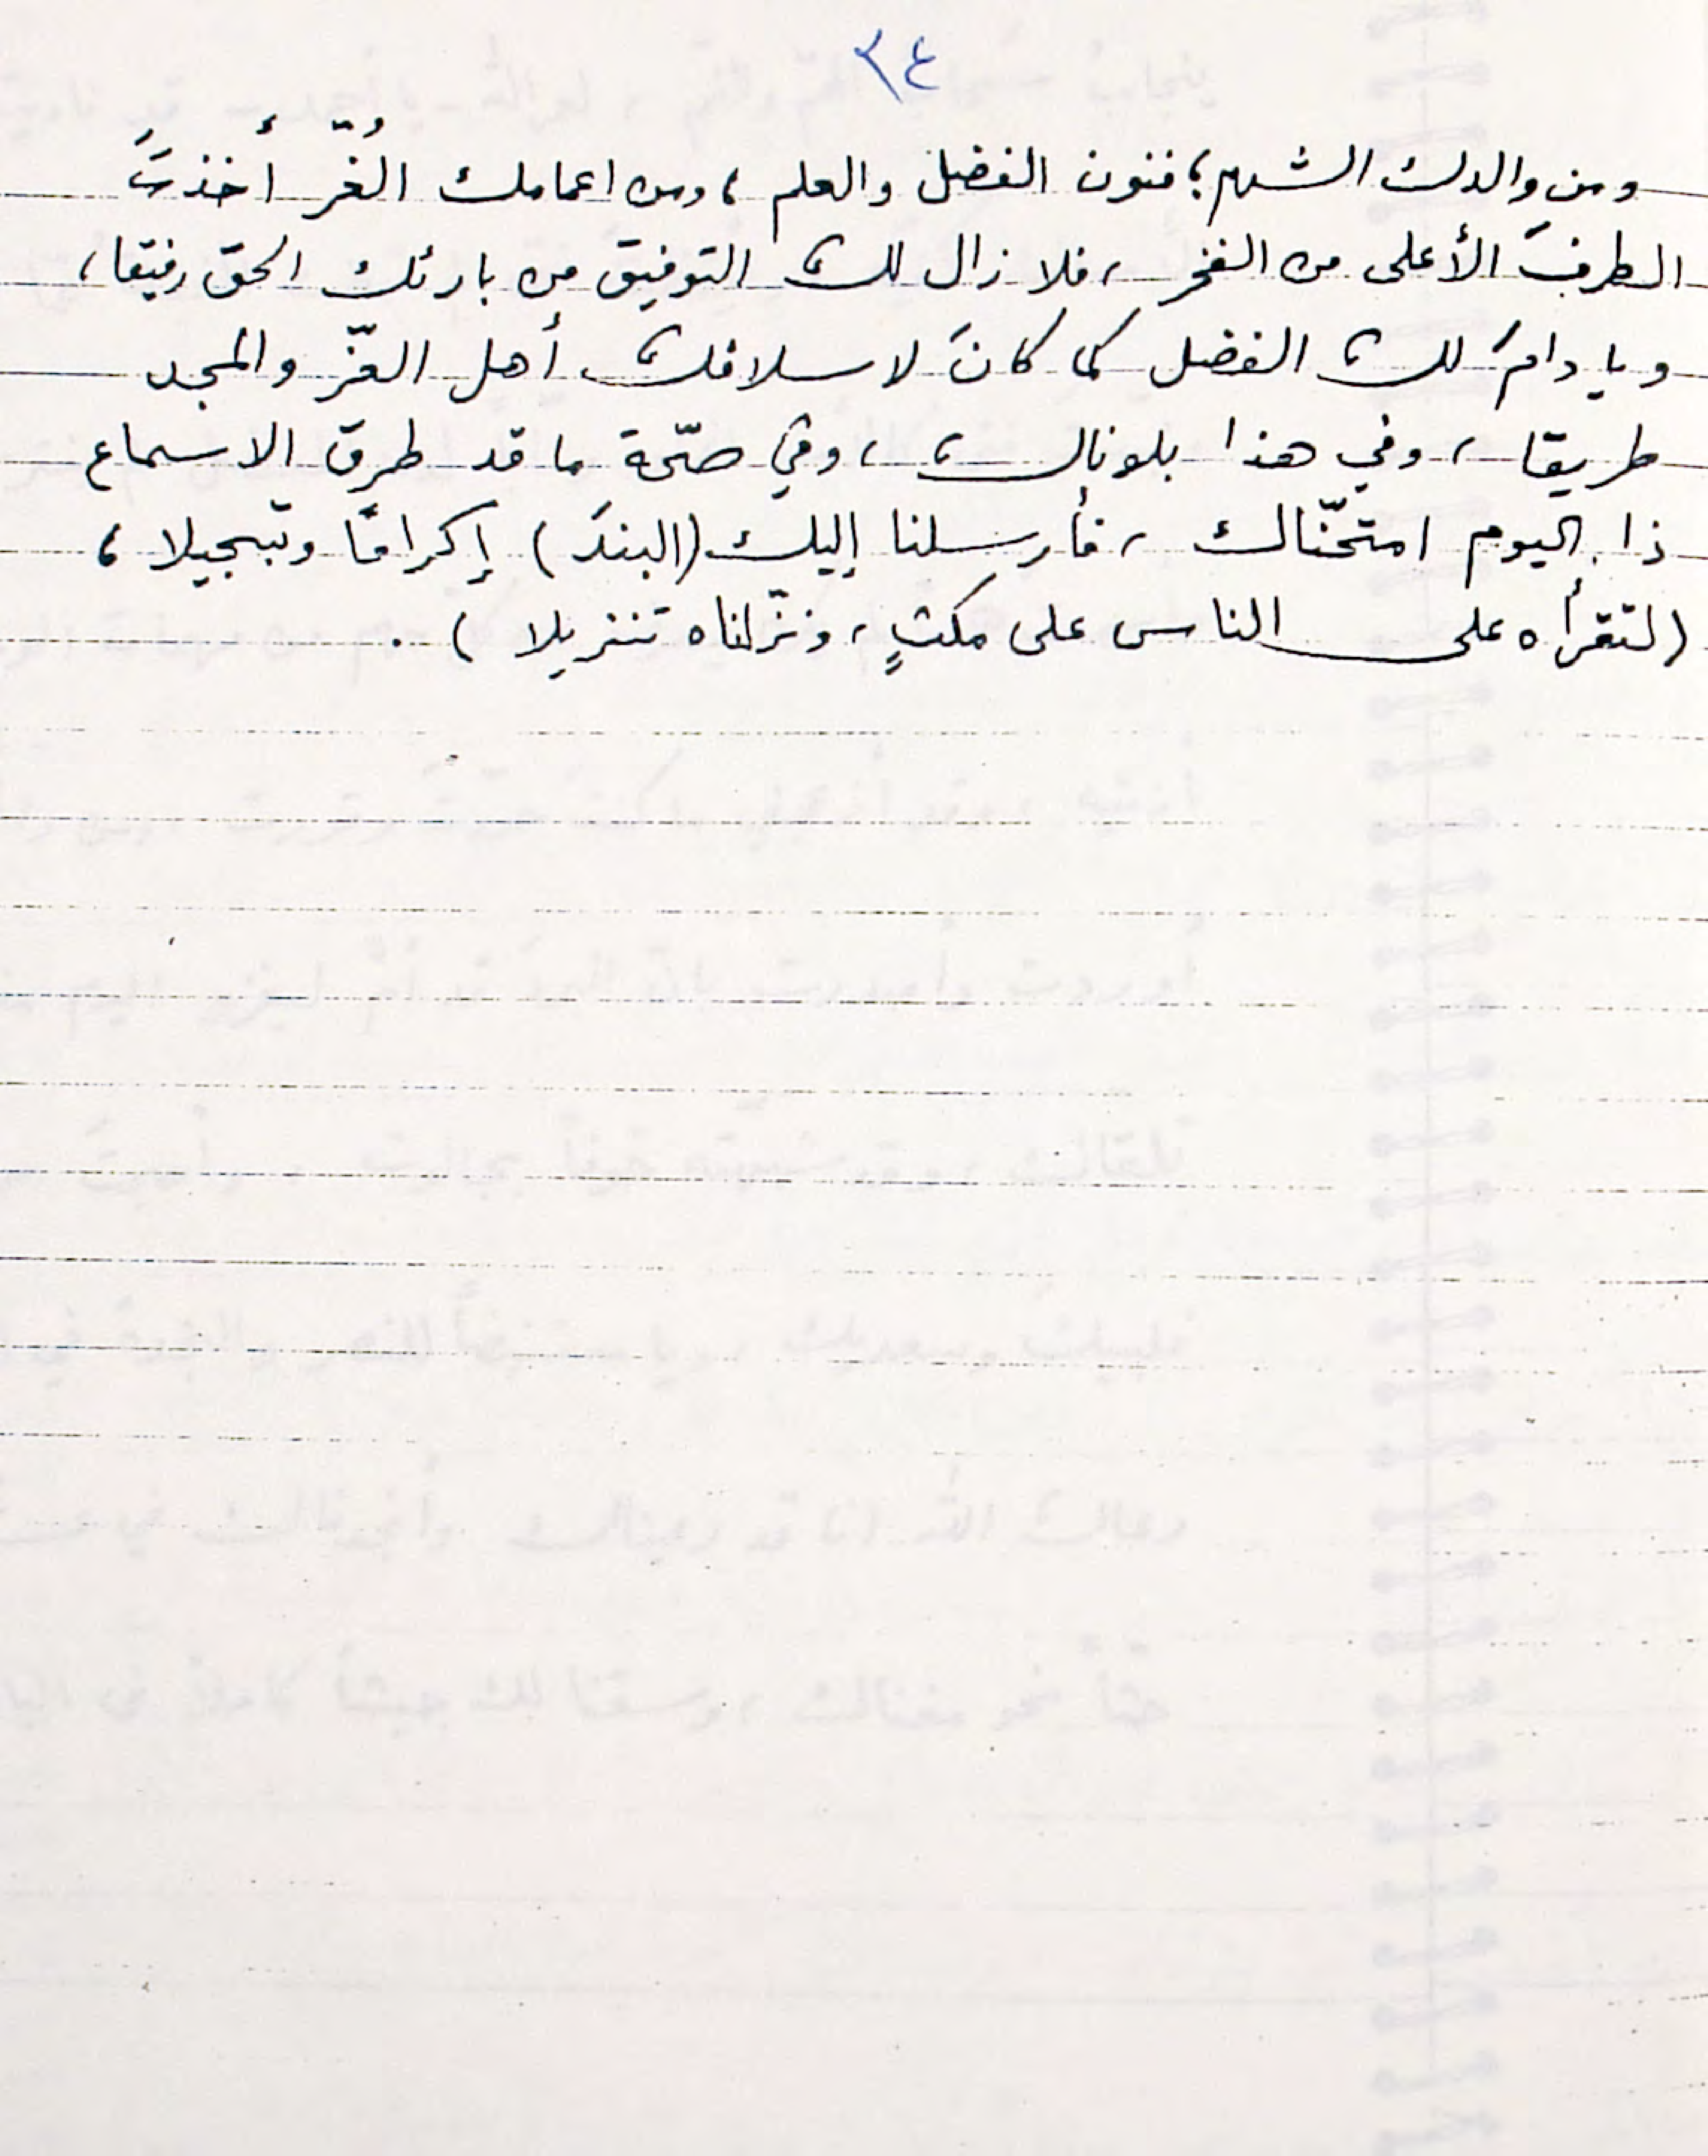 ٣٤
ومن والدك الشهم؛ فنون الفضل والعلم، ومن اعمامك الغُرّ أخذتَ
الطرفَ الأعلى من الفخر، فلا زال لك التوفيق من بارئك الحق رفيقا،
ويا دامَ لك الفضل كما كانَ لاسلافك أهل العزّ والمجد
طريقا، وفي هذا بلوناك، وفي صحّة ما قد طرق الاسماع
ذا اليوم امتحنّاك، فأرسلنا إليك (البندَ) إكرامًا وتبجيلا،
(لتقرأه على الناس على مكثٍ، ونزّلناه تنزيلا).